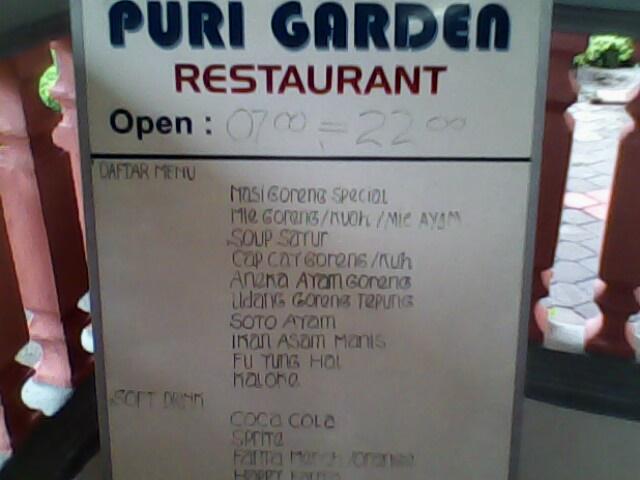 PURI GARDEN
RESTAURANT
Open : 07 00 = 22 00
DAFTAR MENU
Nasi Goreng Special
Mie Goreng/Kuah / Mie Ayam
Soup Sayur
Cap Cay Goreng /Kuh
Aneka Ayam Goreng
Udang Goreng Tepung
Soto Ayam
Ikan Asam Manis
Fu Yung Hai
Kaloke
SOFT DRINK
Coca Cola
Sprite
Fanta Merah /Orange
Happy